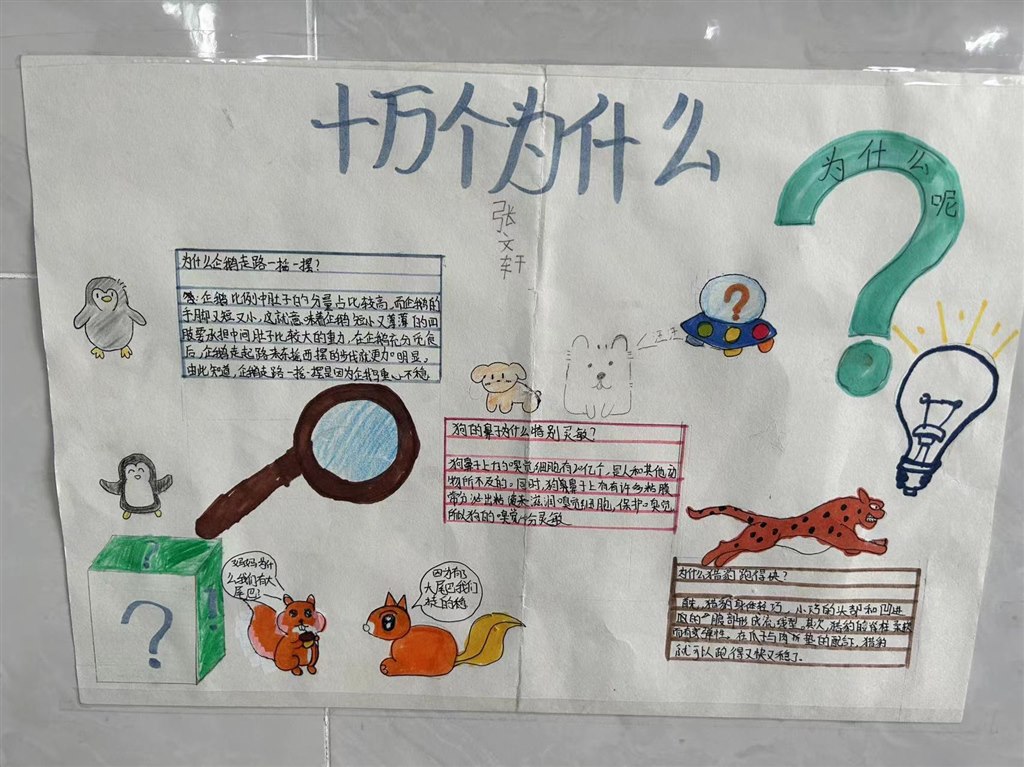 十万个为什么
张文轩
为什么呢
?
为什么企鹅走路一摇一摆?
答:企鹅比例中肚子的分量占比较高,而企鹅的
手脚又短又小,这就意味着企鹅短小又薄薄的四
肢要承担中间肚子比较大的重力,在企鹅充分觅食
后,企鹅走起路来东摇西摆的步伐就更加明显,
由此知道,企鹅走路一摇一摆是因为企鹅重心不稳
?
汪汪
狗的鼻子为什么特别灵敏?
狗鼻子上的嗅觉细胞有20亿个,是人和其他动
物所不及的。同时,狗鼻子上有许多粘膜
常分泌出粘液来滋润嗅觉细胞,保护嗅觉
所以狗的嗅觉十分灵敏
为什么猎豹跑得快?
首先,猎豹身体轻巧,小巧的头部和凹进
去的腹部形成流线型。其次,猎豹的脊柱
而有弹性。在爪子与肉垫的配合下,猎豹
就可以跑得又快又稳了。
妈妈为什
么我们有大
尾巴?
因为有
大尾巴我们
?
?
!